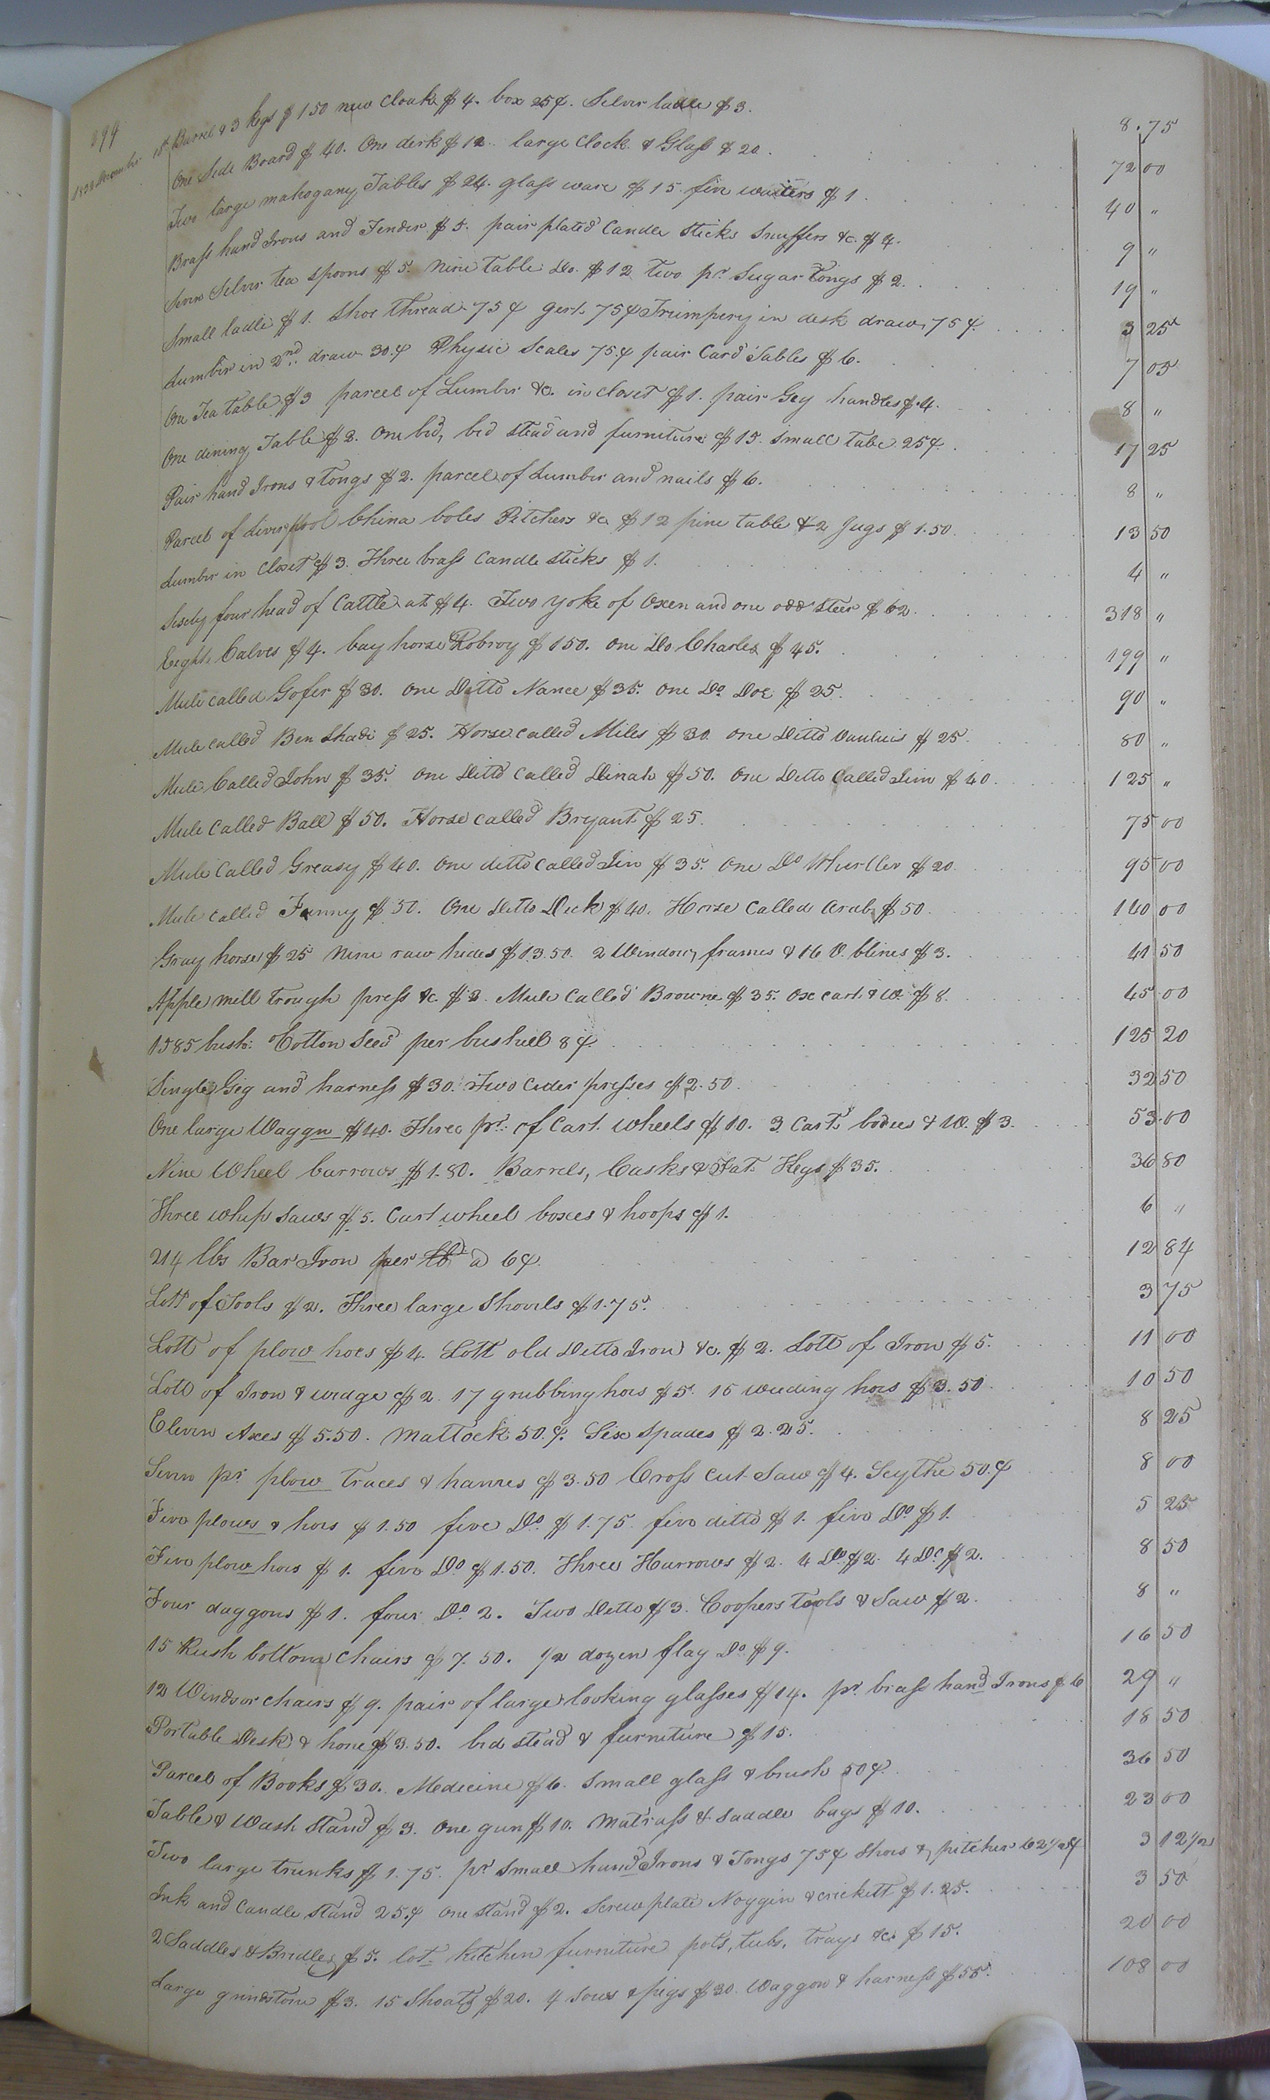 194
1st Barrel & 3 kegs $1.50 new Cloak $4. box 25¢. Silver ladle $3. 8.75
One Side Board $40. One desk $12. large Clock & Glass $20. 72 00
Two large mahogany Tables $24. glass ware $15. five waiters $1. 40 "
Brass hand Irons and Fender $5. pair plated Candle Sticks Snuffers &c. $4. 9 "
Seven Silver tea Spoons $5. Nine table Do. $12 Two pr Sugar Tongs $2. 19 "
Small ladle $1. Shoe thread 75¢ gert. 75¢ Trumpery in desk draw, 75¢. 3 25
Lumber in 2nd draw 30¢ Physic Scales 75¢ pair Card Tables $6. 7 05
One Tea table $3 parcel of Lumber &c. in closet $1. pair Gig handles $4. 8 "
One dining Table $2. One bed, bed stead and furniture $15. Small table 25¢. 17 25
Pair hand Irons & Tongs $2. parcel of Lumber and nails $6. 8 "
Parcel of Liverpool China boles Pitchers &c $12 pine table & 2 Jugs $1.50. 13 50
Lumber in Closet $3. Three brass Candle sticks $1. 4 "
Sixty four head of Cattle at $4. Two yoke of Oxen and one odd Steer $62. 318 "
Eight Calves $4. bay horse Robroy $150. One Do Charles $45. 199 "
Mule called Gofer $30. One Ditto Nance $35. One Do. Doe $25. 90 "
Mule called Ben Shadi $25. Horse called Miles $30. One Ditto $25. 80 "
Mule Called John $35. One Ditto called Dinah $50. One Ditto Called Jim $40. 125 "
Mule Called Ball $50. Horse called Bryant $25. 75 00
Mule Called Greasy $40. One ditto called Jin $35. One Do $20. 95 00
Mule called Fanny $50. One Ditto Dick $40. Horse Called Arab $50. 140 00
Gray horse $25 Nine raw hides $13.50. 2 Window frames & 16 V. blines $3. 41 50
Apple mill trough press &c $2. Mule Called Browne $35. Ox cart & W. $8. 45 00
1585 bush: Cotton Seed per bushell 8¢. 125 20
Single Gig and harness $30. Two cider presses $2.50. 32 50
One large Waggn $40. Three pr. of Cart wheels $10. 3 Carts bodies & W. $3. 53 00
Nine Wheel barrows $1.80. Barrels, Casks & Fat Kegs $35. 36 80
Three whip Saws $5. Cart wheel boxes & hoops $1. 6 "
214 lbs Bar Iron per lb a 6¢. 12 84
Lott of Tools $2. Three large Shovels $1.75. 3 75
Lott of plow hoes $4. Lott old Ditto Iron &c. $2. Lott of Iron $5. 11 00
Lott of Iron & wedge $2 17 grubbing hoes $5. 15 weeding hoes $3.50. 10 50
Eleven Axes $5.50. Mattock 50¢. Six Spades $2.25. 8 25
Seven pr plow traces & hames $3.50 Cross cut Saw $4. Scythe 50¢ 8 00
Five plows & hoes $1.50 five Do. $1.75. five ditto $1. five Do. $1. 5 25
Five plow hoes $1. five Do $1.50. Three Harrows $2. 4 Do $2. 4 Do $2. 8 50
Four daggons $1. four Do. 2. Two Ditto $3. Coopers tools & Saw $2. 8 "
15 Rush bottom Chairs $7.50. 1/2 dozen flag Do $9. 16 50
12 Windsor chairs $9. pair of large looking glasses $14. pr. brass hand Irons $6 29 "
Portable Desk & hone $3.50. bed stead & furniture $15. 18 50
Parcel of Books $30. Medicine $6. Small glass & brush 50¢. 36 50
Table & Wash Stand $3. One gun $10. Matrass & Saddle bags $10. 23 00
Two large trunks $1.75. pr. Small hand Irons & Tongs 75¢ Shoes & pitcher 62 1/2¢ 3 12 1/2
Ink and Candle Stand 25¢ One Stand $2. Screw plate Noggin & crickett $1.25. 3 50
2 Saddles & Bridles $5. lot. Kitchen furniture pots, tubs, trays &c. $15. 20 00
Large grindstone $3. 15 Shoats $20. 4 Sows & pigs $30. Waggon & harness $55. 108 00